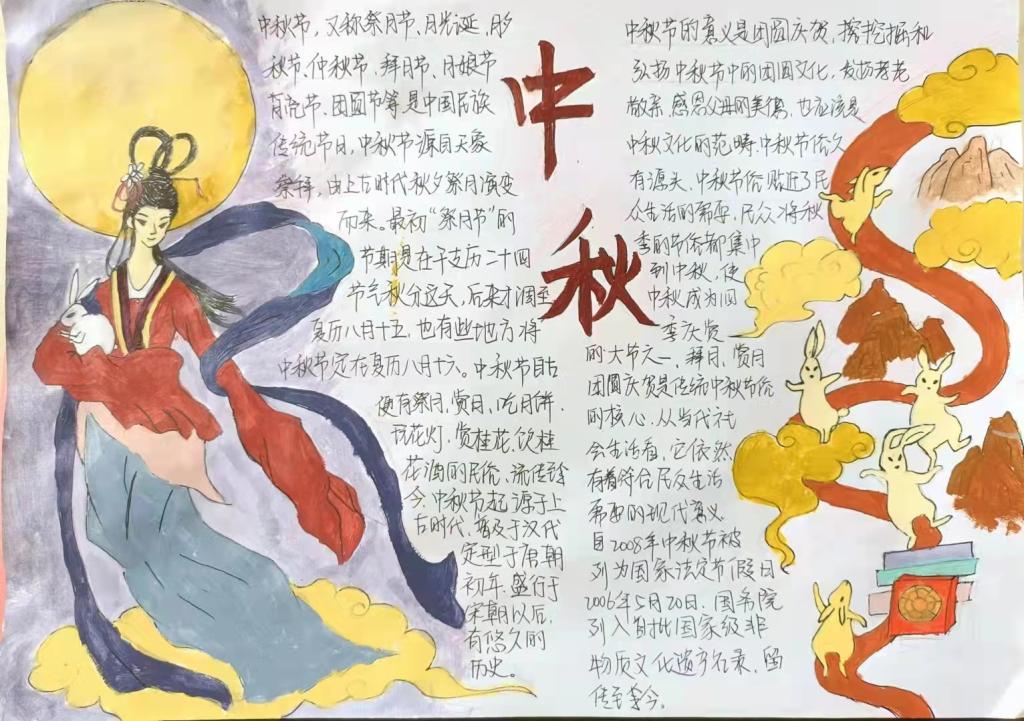 中秋节，又称祭月节、月光诞、月夕
秋节、仲秋节、拜月节、月娘节
月亮节、团圆节等是中国民族
传统节日，中秋节源自天象
祭拜，由上古时代秋夕祭月演变
而来。最初“祭月节”的
节期是在干支历二十四
节气秋分这天，后来才调至
夏历八月十五，也有些地方将
中秋节定在夏历八月十六。中秋节自古
便有祭月、赏月、吃月饼、
玩花灯、赏桂花、饮桂
花酒的民俗，流传至
今，中秋节起源于上
古时代，普及于汉代
定型于唐朝
初年，盛行于
宋朝以后，
有悠久的
历史。
中
秋
中秋节的意义是团圆庆贺，挖掘和
弘扬中秋节中的团圆文化，发扬孝老
敬亲，感恩父母的美德，也应该是
中秋文化的范畴，中秋节俗久
有源头，中秋节俗贴近了民
众生活的需要，民众将秋
季的节俗都集中
到中秋，使
中秋成为四
季庆贺
的大节之一，拜月，赏月
团圆庆贺是传统中秋节俗
的核心，从当代社
会生活看，它依然
有着符合民众生活
需要的现代意义
自2008年中秋节被
列为国家法定节假日
2006年5月20日，国务院
列入首批国家级非
物质文化遗产名录，留
传至今。